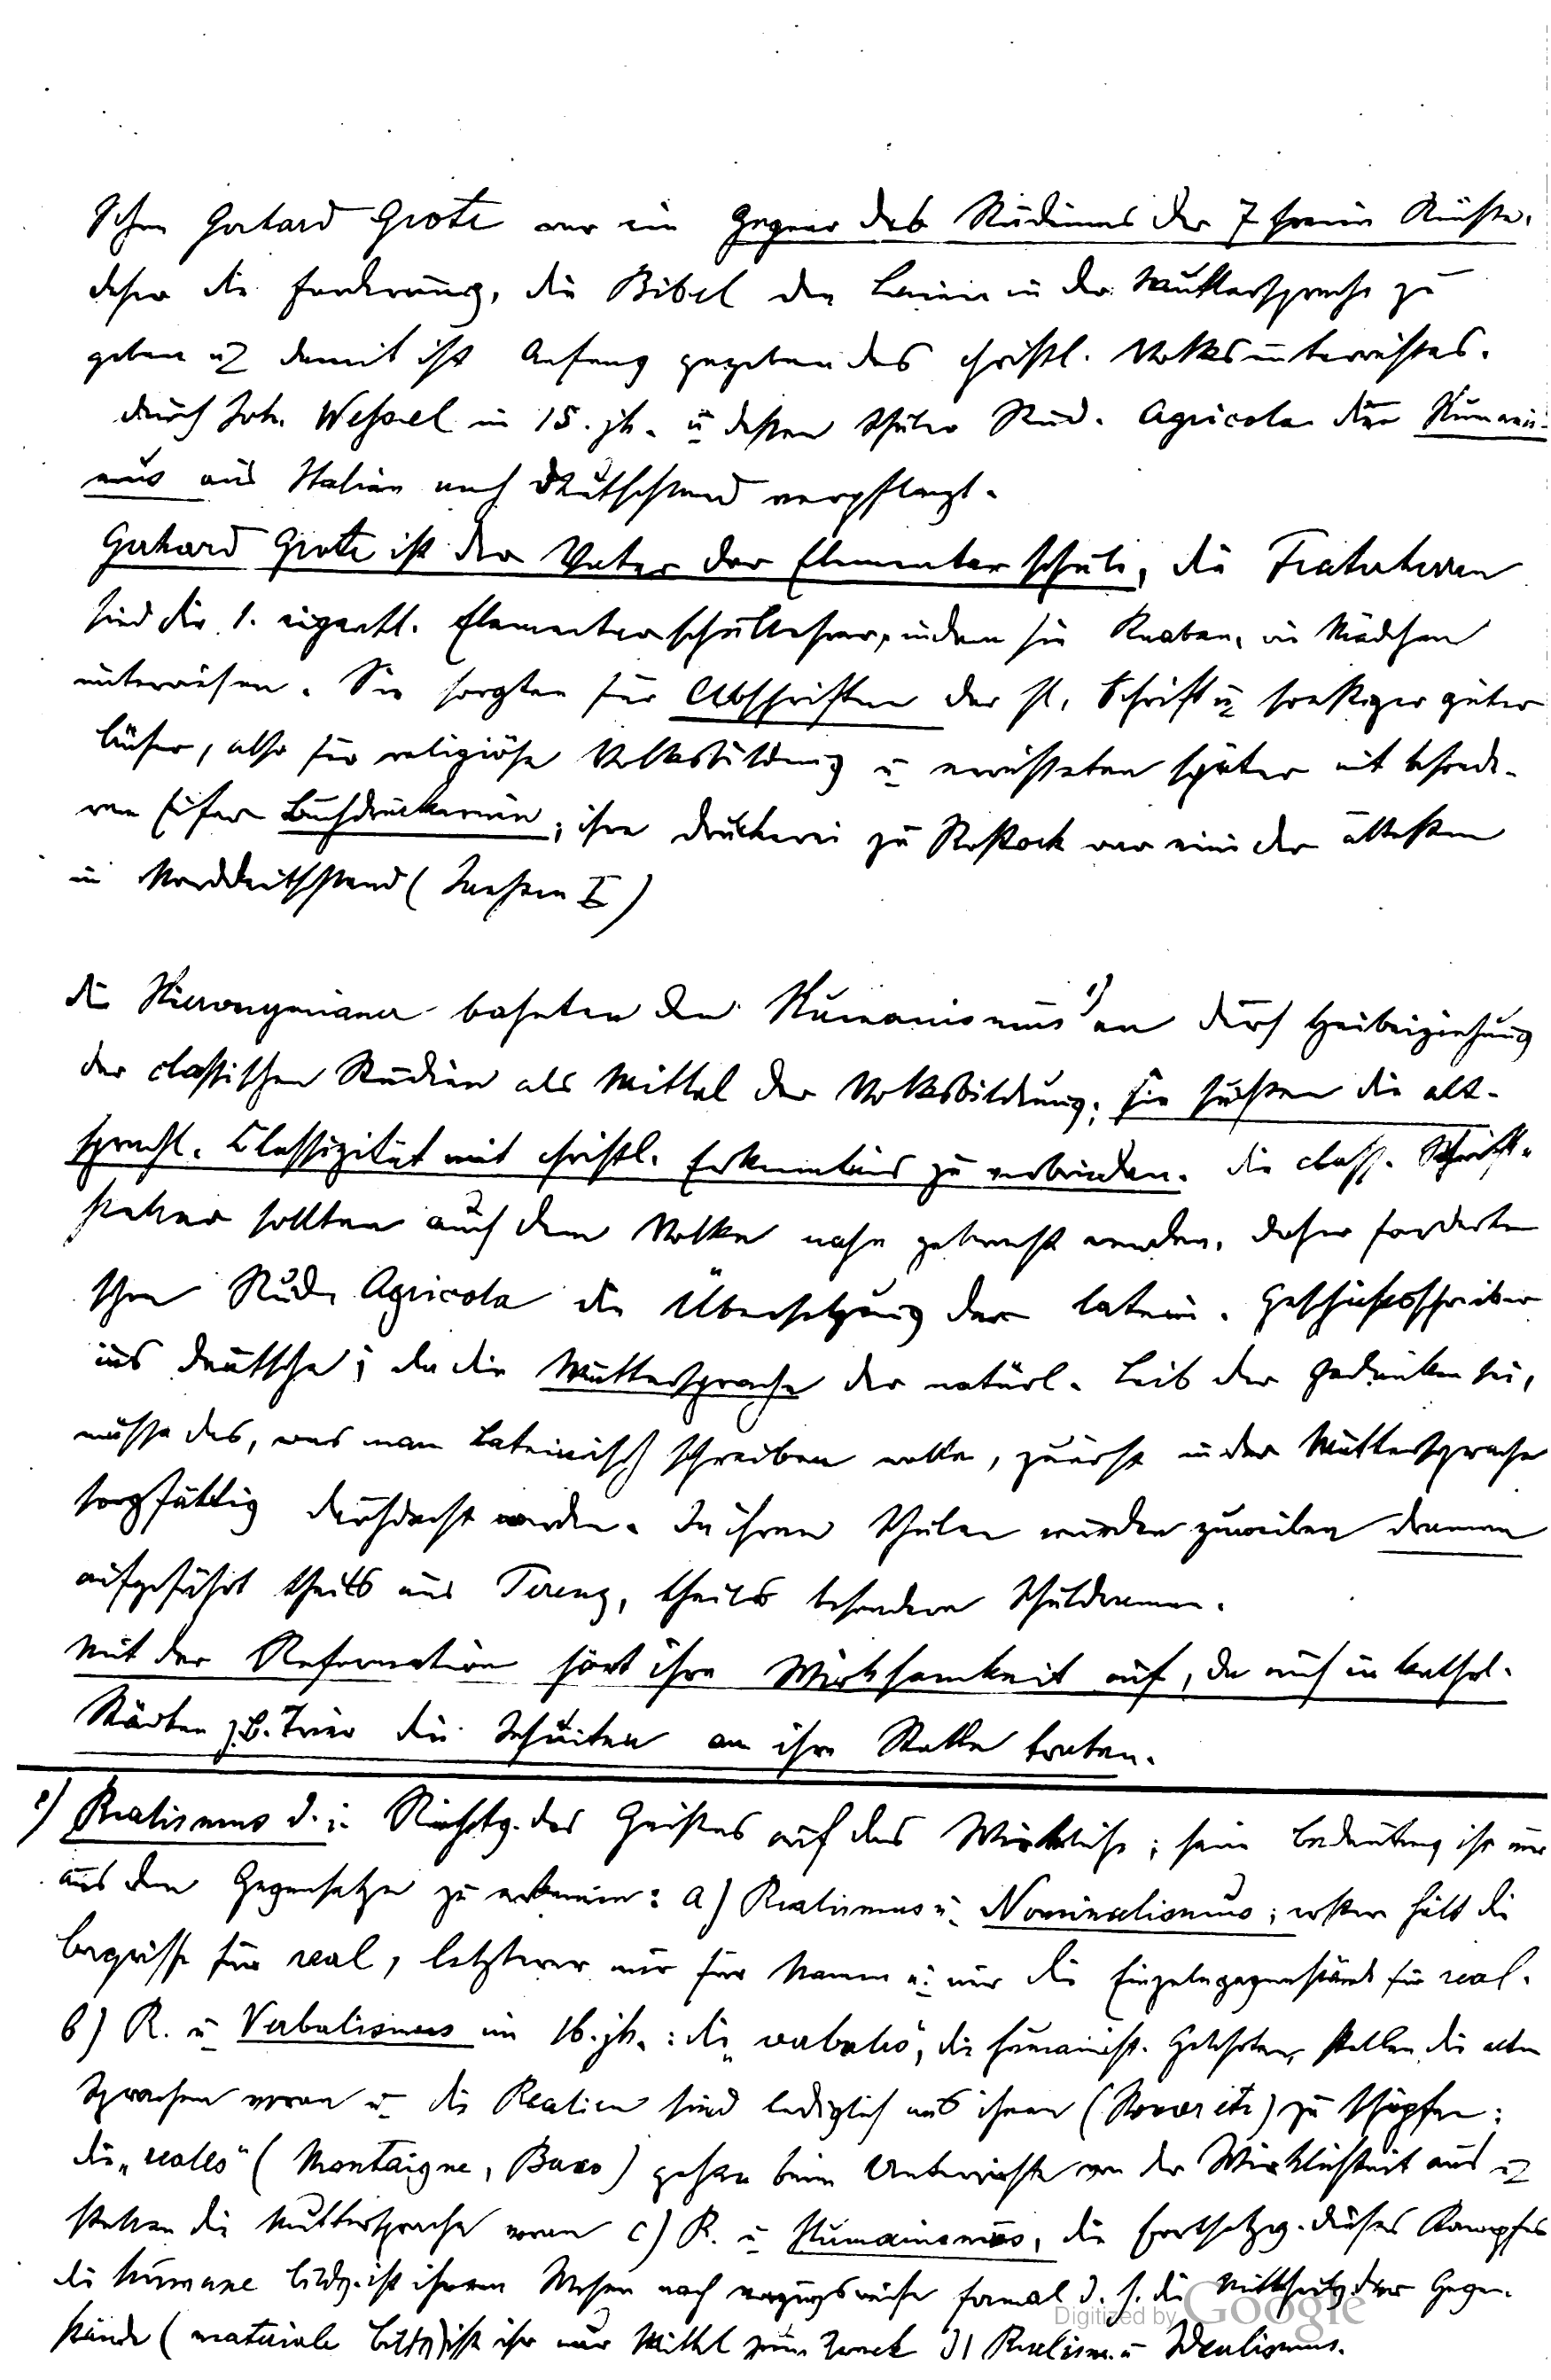 Schon Gerhard Grote war ein Gegner des Studiums der 7 freien Künste,
daher die Forderung, die Bibel den Laien in der Muttersprache zu
geben u damit ist Anfang gegeben des christl. Volksunterrichtes.
durch Joh. Wessel im 15. Jh. u dessen Schüler Rud. Agricola der Humanis-
mus aus Italien nach Deutschland verpflanzt.
Gerhard Grote ist der Vater der Elementarschule, die Fraterherren
sind die 1. eigentl. Elementarschullehrer, indem sie Knaben, wie Mädchen
unterwiesen. Sie sorgten für Abschriften der hl. Schrift u sonstiger guter
Bücher, also für religiöse Volksbildung u errichteten später mit besonde-
ren Eifer Buchdruckereien; ihre Druckerei zu Rostock war eine der ältesten
in Norddeutschland (Janssen I)
die Hieronymianer bahnten den Humanismus 1) an durch Herbeiziehung
der classischen Studien als Mittel der Volksbildung; sie suchten die alt-
sprachl. Classizität mit christl. Erkenntnis zu verbinden. die class. Schrift-
steller sollten auch dem Volke nahe gebracht werden, daher forderte
schon Rud. Agricola die Übersetzung der latein. Geschichtsschreiber
ins deutsche; da die Muttersprache der natürl. Leib der Gedanken sei,
müsse das, was man Lateinisch schreiben wolle, zuerst in der Muttersprache
sorgfältig durchdacht werden. In ihren Schulen wurden zuweilen Dramen
aufgeführt theils aus Terenz, theils besondere Schuldramen.
Mit der Reformation hört ihre Wirksamkeit auf, da auch in kathol.
Städten z.B. Trier die Jesuiten an ihre Stelle traten.
1) Realismus d. i. Richtg. des Geistes auf das Wirkliche; seine Bedeutung ist nur
aus dem Gegensatze zu erkennen: a) Realismus u. Nominalismus; erster hält die
Begriffe für real, letzterer nur für Namen u. nur die Einzelngegenstände für real.
b) R. u Verbalismus im 16. Jh.: die „verbales", die humanist. Gelehrten, stellen die alten
Sprachen voran u die Realien sind lediglich aus ihnen zu schöpfen;
die „reales" (Montaigne, Baco) gehen beim Unterrichte von der Wirklichkeit aus u
stellen die Muttersprache voran c) R. u Humanismus, die Fortsetzg. dieses Kampfes
die humane Bildg. ist ihrem Wesen nach vorzugsweise formal d. h. die Mittheilg. der Gegen-
stände (materiale Bildg) ist ihr nur Mittel zum Zweck d) Realism. u Idealismus.
Digitized by Google